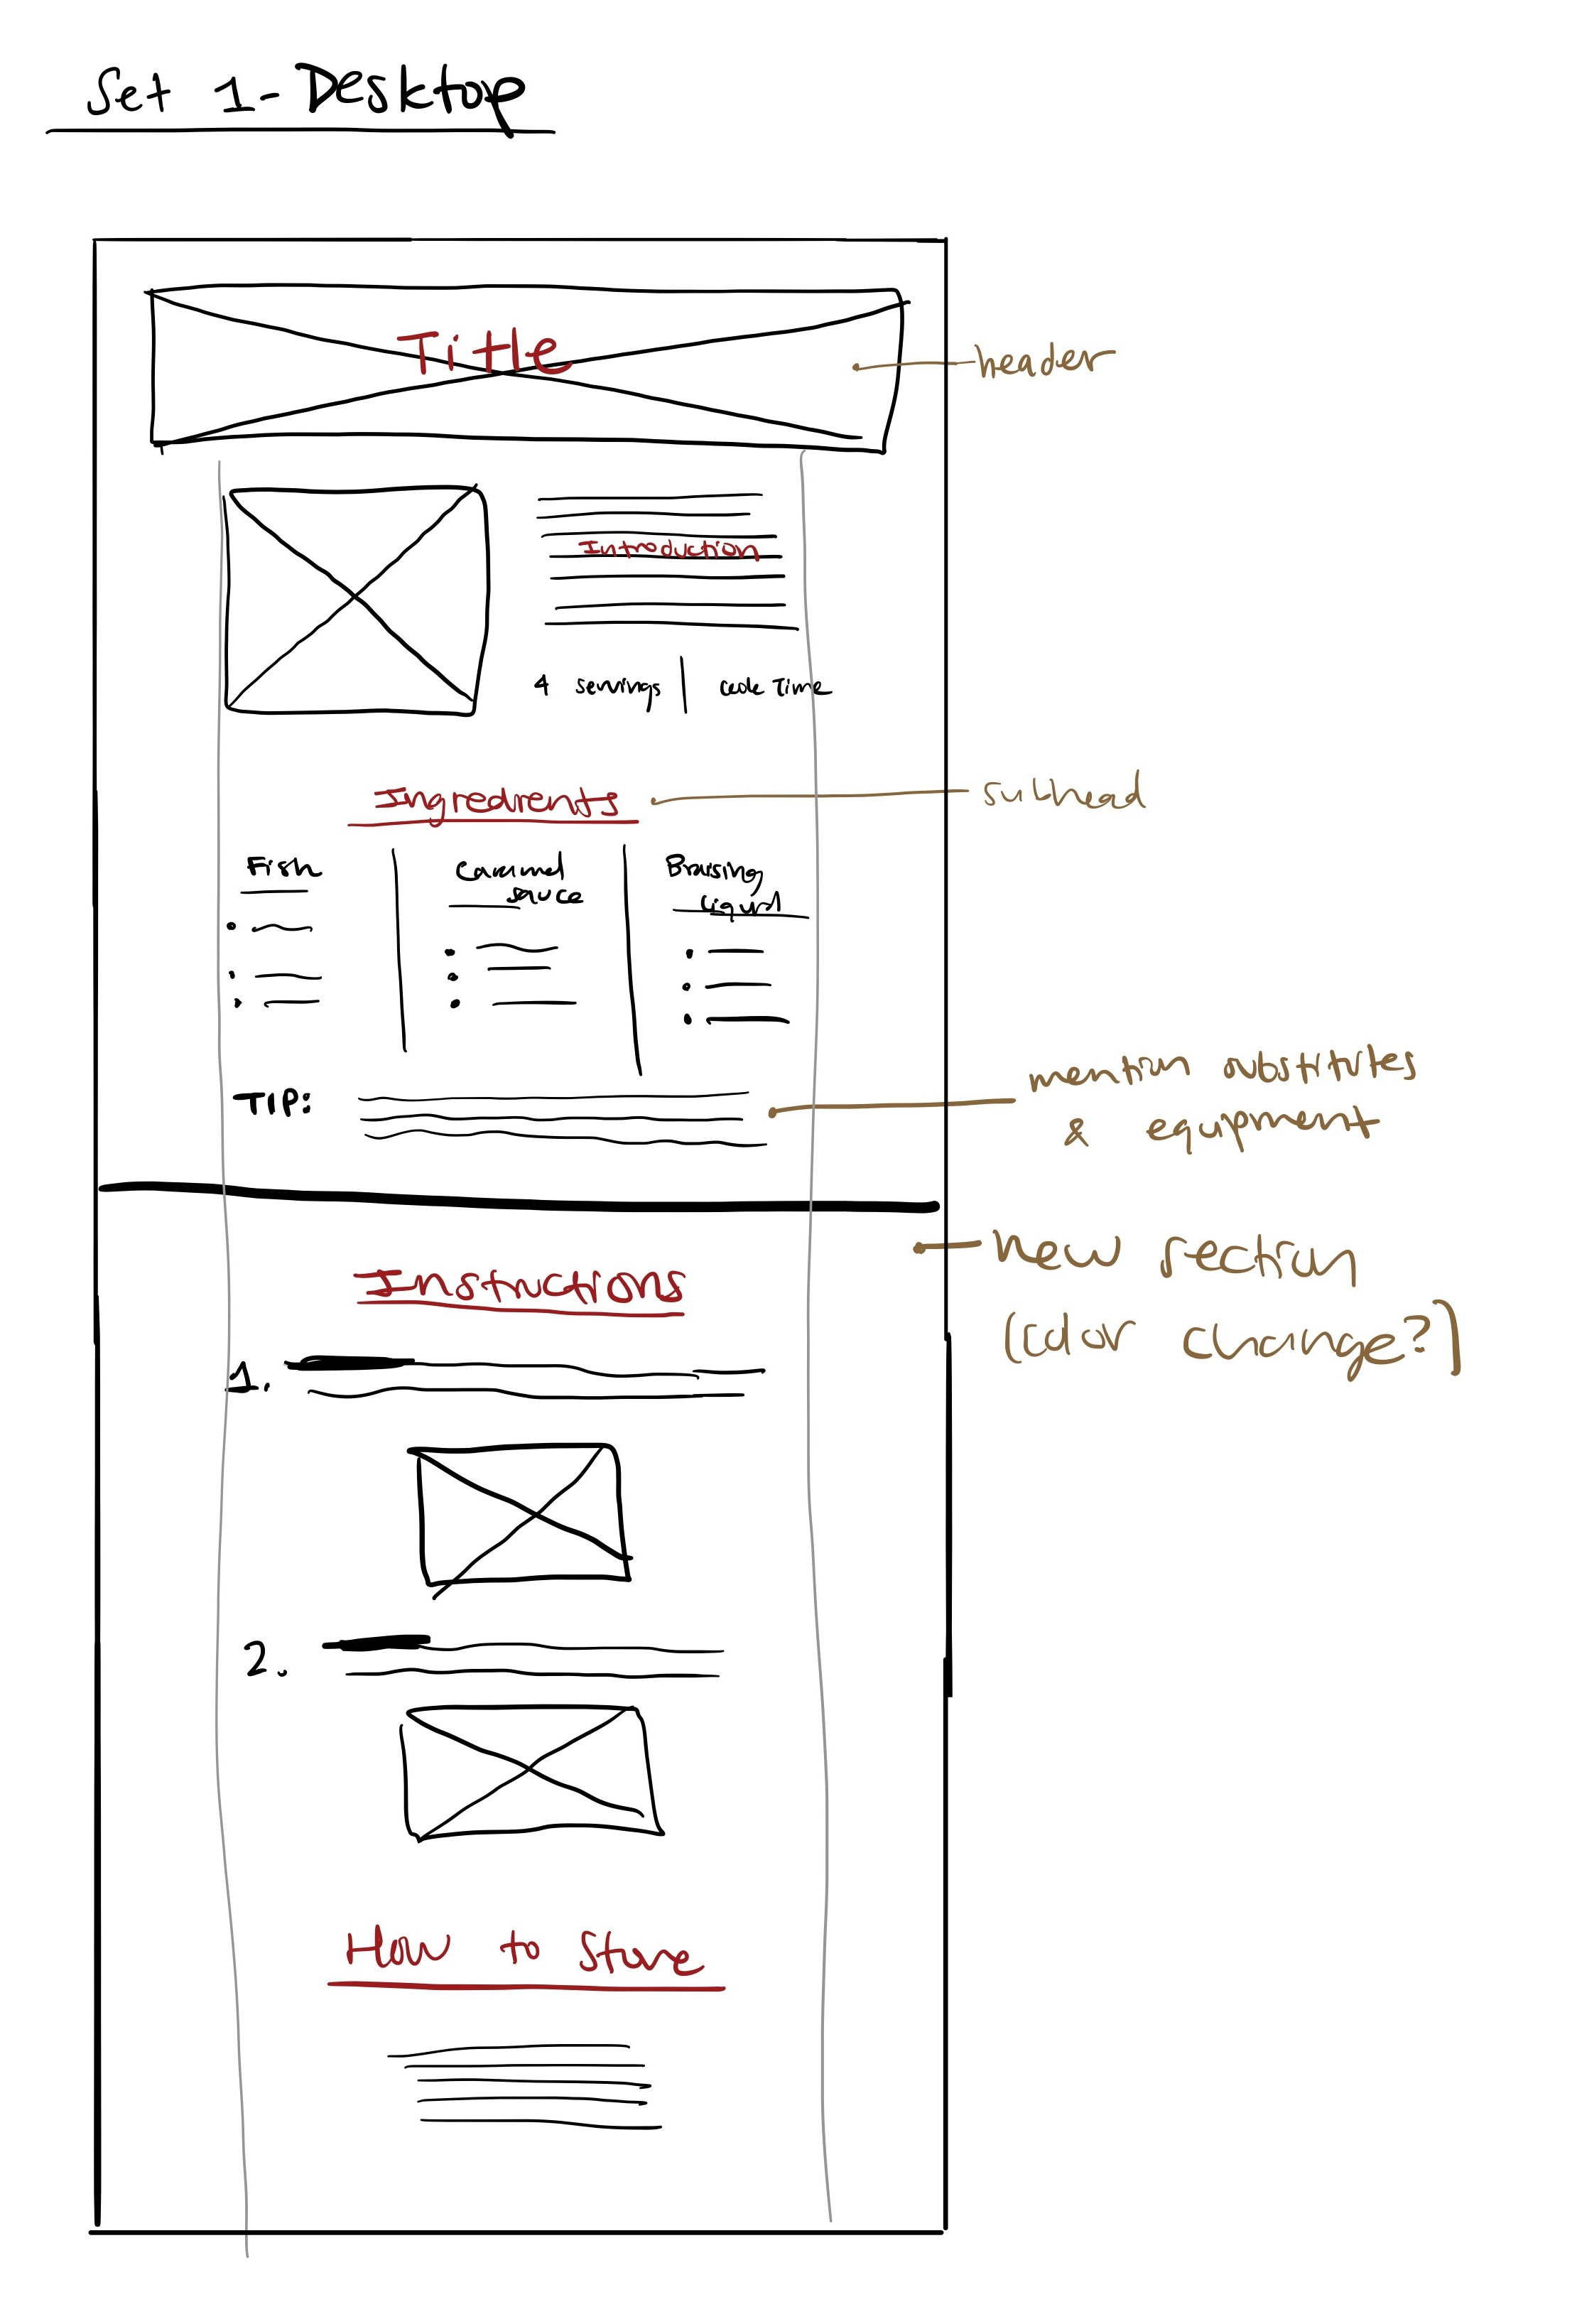 Set 1 - Desktop
Title
header
Introduction
4 servings
Time
Ingredients
subhead
Fish
sauce
Braising
liquid
TIP:
mention
& equipment
new section
(color change?)
Instructions
1.
2.
How to Store